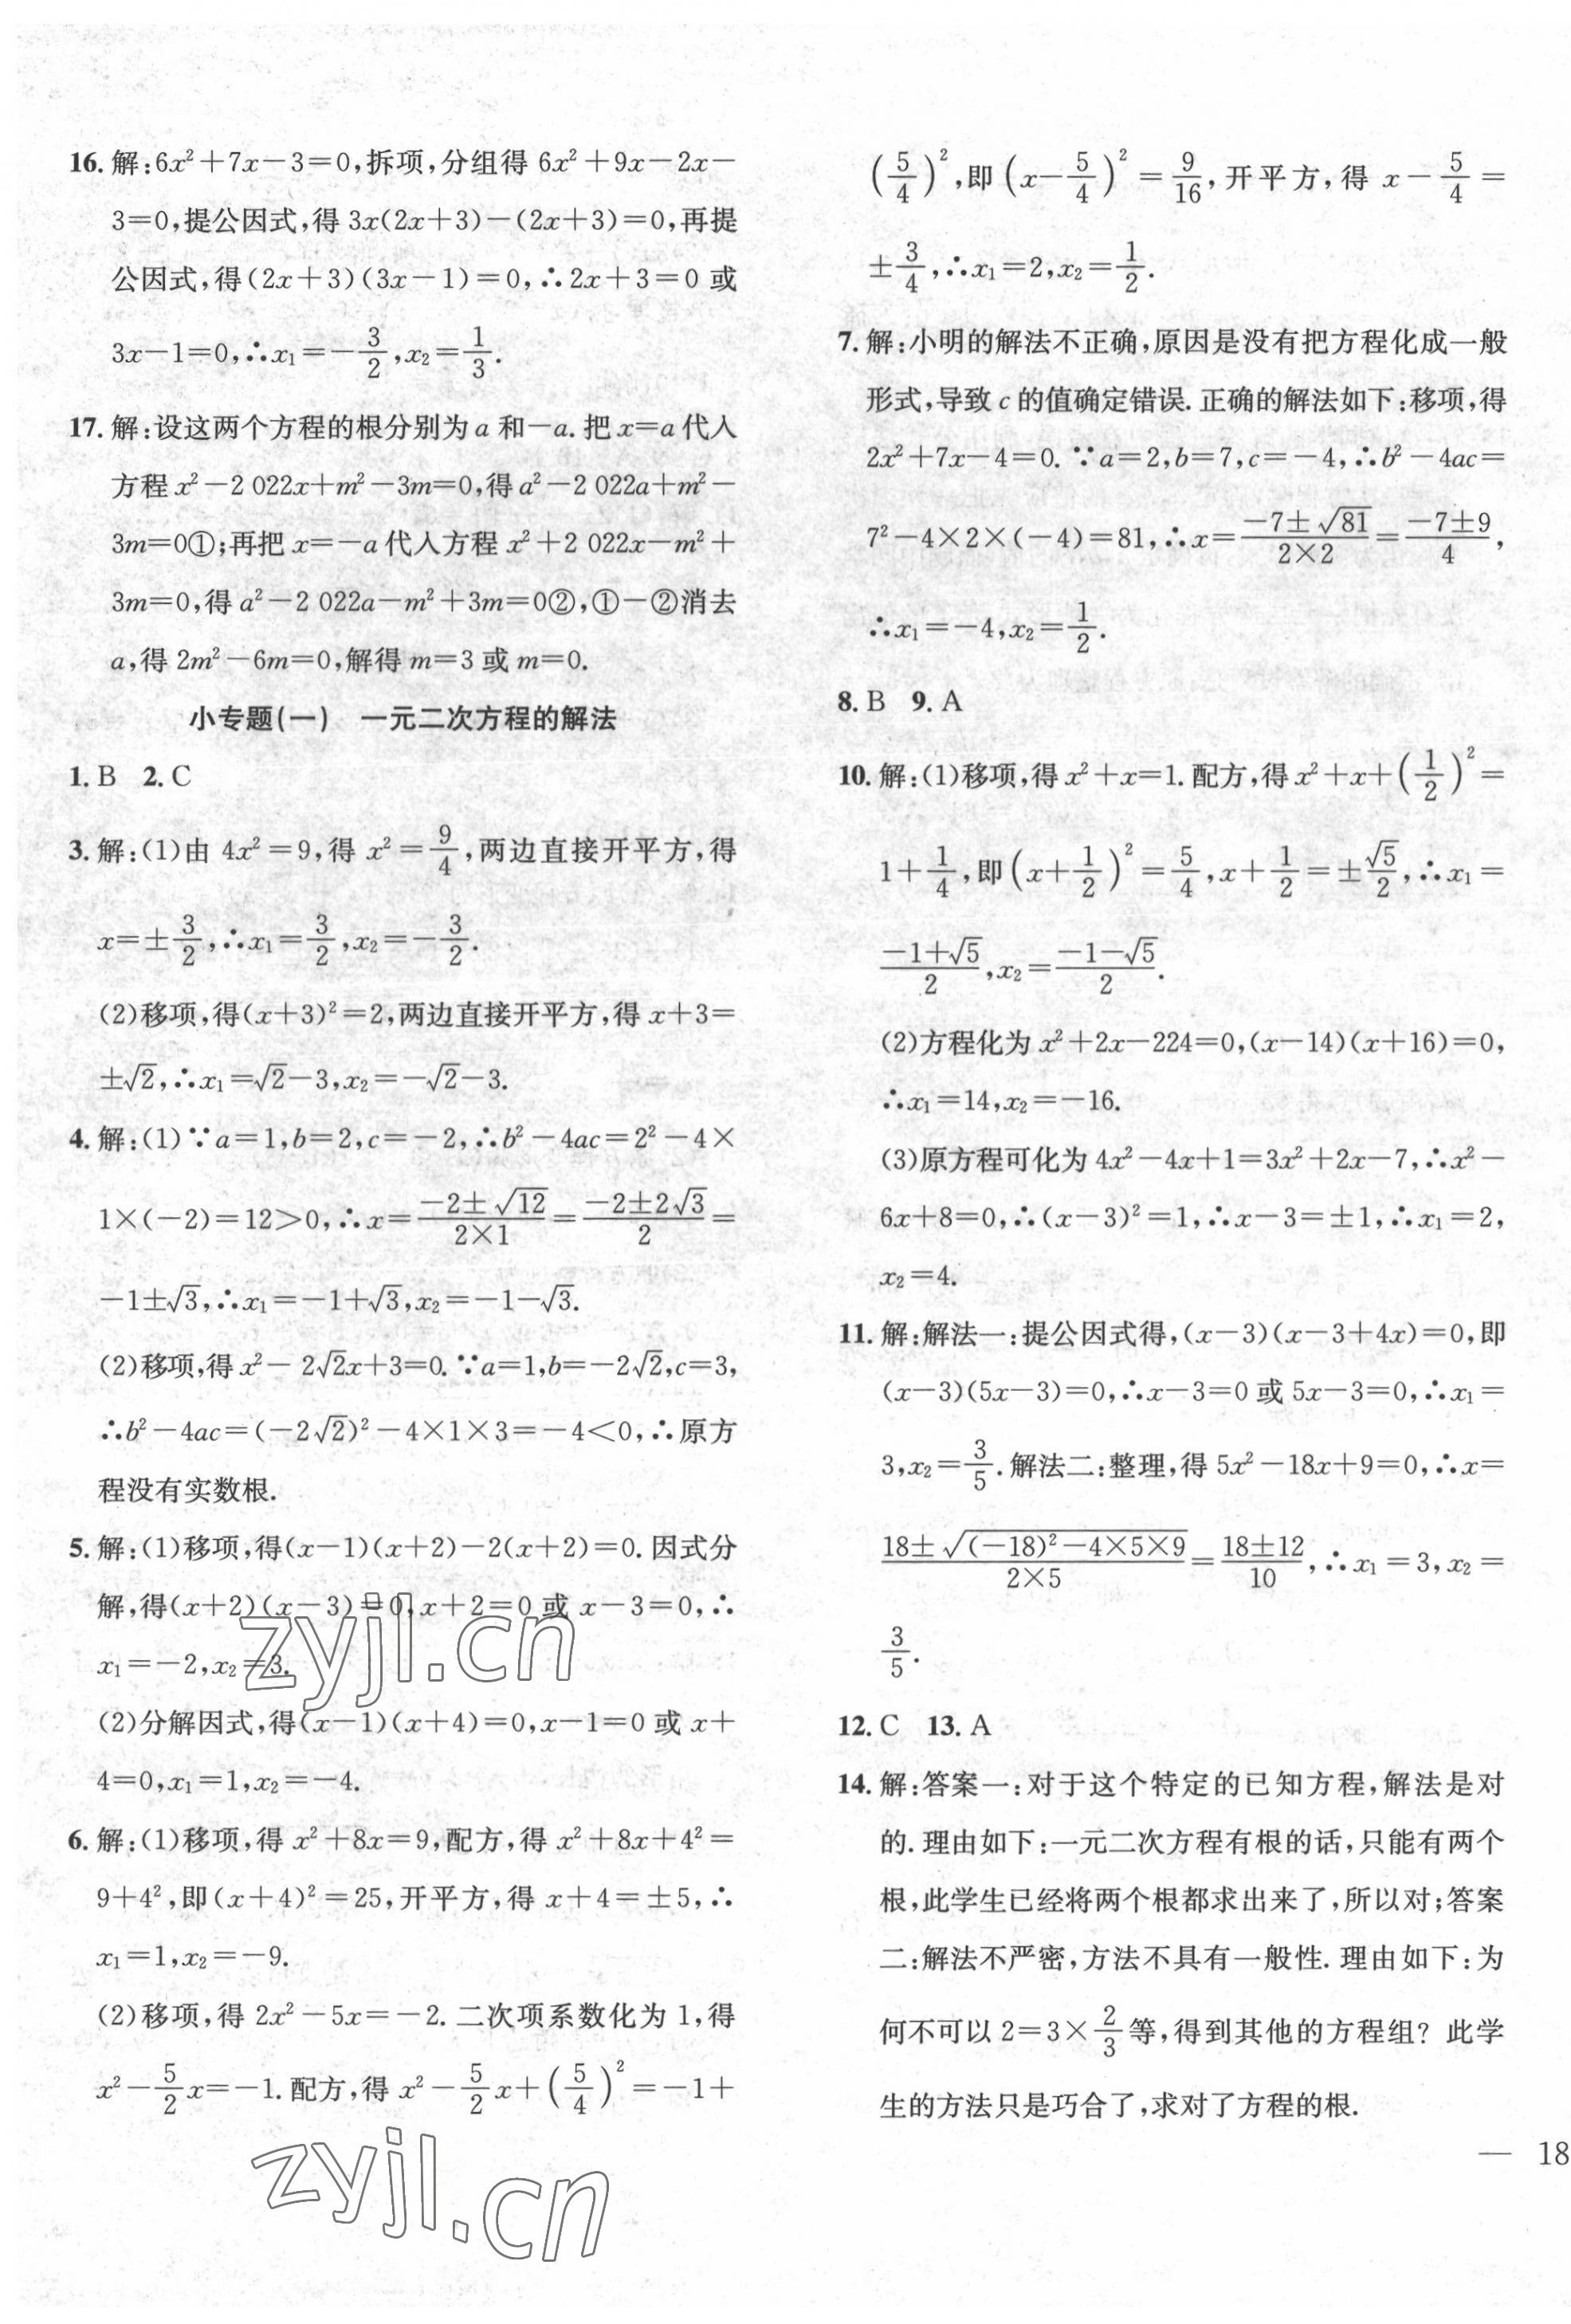 16. 解:6x²+7x-3=0,拆项,分组得 6x²+9x-2x-
3=0,提公因式,得 3x(2x+3)-(2x+3)=0,再提
公因式,得(2x+3)(3x-1)=0,∴2x+3=0 或
3x-1=0,∴x₁=-3/2,x₂=1/3.
17. 解:设这两个方程的根分别为 a 和-a. 把 x=a 代入
方程 x²-2 022x+m²-3m=0,得 a²-2 022a+m²-
3m=0①;再把 x=-a 代入方程 x²+2 022x-m²+
3m=0,得 a²-2 022a-m²+3m=0②,①-②消去
a,得 2m²-6m=0,解得 m=3 或 m=0.
小专题(一) 一元二次方程的解法
1. B 2. C
3. 解:(1)由 4x²=9,得 x²=9/4,两边直接开平方,得
x=±3/2,∴x₁=3/2,x₂=-3/2.
(2)移项,得(x+3)²=2,两边直接开平方,得 x+3=
±√2,∴x₁=√2-3,x₂=-√2-3.
4. 解:(1)∵a=1,b=2,c=-2,∴b²-4ac=2²-4×
1×(-2)=12>0,∴x=(-2±√12)/(2×1)=(-2±2√3)/2=
-1±√3,∴x₁=-1+√3,x₂=-1-√3.
(2)移项,得 x²-2√2x+3=0.∵a=1,b=-2√2,c=3,
∴b²-4ac=(-2√2)²-4×1×3=-4<0,∴原方
程没有实数根.
5. 解:(1)移项,得(x-1)(x+2)-2(x+2)=0. 因式分
解,得(x+2)(x-3)=0,x+2=0 或 x-3=0,∴
x₁=-2,x₂=3.
(2)分解因式,得(x-1)(x+4)=0,x-1=0 或 x+
4=0,x₁=1,x₂=-4.
6. 解:(1)移项,得 x²+8x=9,配方,得 x²+8x+4²=
9+4²,即(x+4)²=25,开平方,得 x+4=±5,∴
x₁=1,x₂=-9.
(2)移项,得 2x²-5x=-2. 二次项系数化为 1,得
x²-5/2x=-1. 配方,得 x²-5/2x+(5/4)²=-1+
zyjl.cn
zyjl.cn
(5/4)²,即(x-5/4)²=9/16,开平方,得 x-5/4=
±3/4,∴x₁=2,x₂=1/2.
7. 解:小明的解法不正确,原因是没有把方程化成一般
形式,导致 c 的值确定错误. 正确的解法如下:移项,得
2x²+7x-4=0. ∵a=2,b=7,c=-4,∴b²-4ac=
7²-4×2×(-4)=81,∴x=(-7±√81)/(2×2)=(-7±9)/4,
∴x₁=-4,x₂=1/2.
8. B 9. A
10. 解:(1)移项,得 x²+x=1. 配方,得 x²+x+(1/2)²=
1+1/4,即(x+1/2)²=5/4,x+1/2=±√5/2,∴x₁=
(-1+√5)/2,x₂=(-1-√5)/2.
(2)方程化为 x²+2x-224=0,(x-14)(x+16)=0,
∴x₁=14,x₂=-16.
(3)原方程可化为 4x²-4x+1=3x²+2x-7,∴x²-
6x+8=0,∴(x-3)²=1,∴x-3=±1,∴x₁=2,
x₂=4.
11. 解:解法一:提公因式得,(x-3)(x-3+4x)=0,即
(x-3)(5x-3)=0,∴x-3=0 或 5x-3=0,∴x₁=
3,x₂=3/5. 解法二:整理,得 5x²-18x+9=0,∴x=
(18±√((-18)²-4×5×9))/(2×5)=(18±12)/10,∴x₁=3,x₂=
3/5.
12. C 13. A
14. 解:答案一:对于这个特定的已知方程,解法是对
的. 理由如下:一元二次方程有根的话,只能有两个
根,此学生已经将两个根都求出来了,所以对;答案
二:解法不严密,方法不具有一般性. 理由如下:为
何不可以 2=3×2/3等,得到其他的方程组? 此学
生的方法只是巧合了,求对了方程的根.
— 18